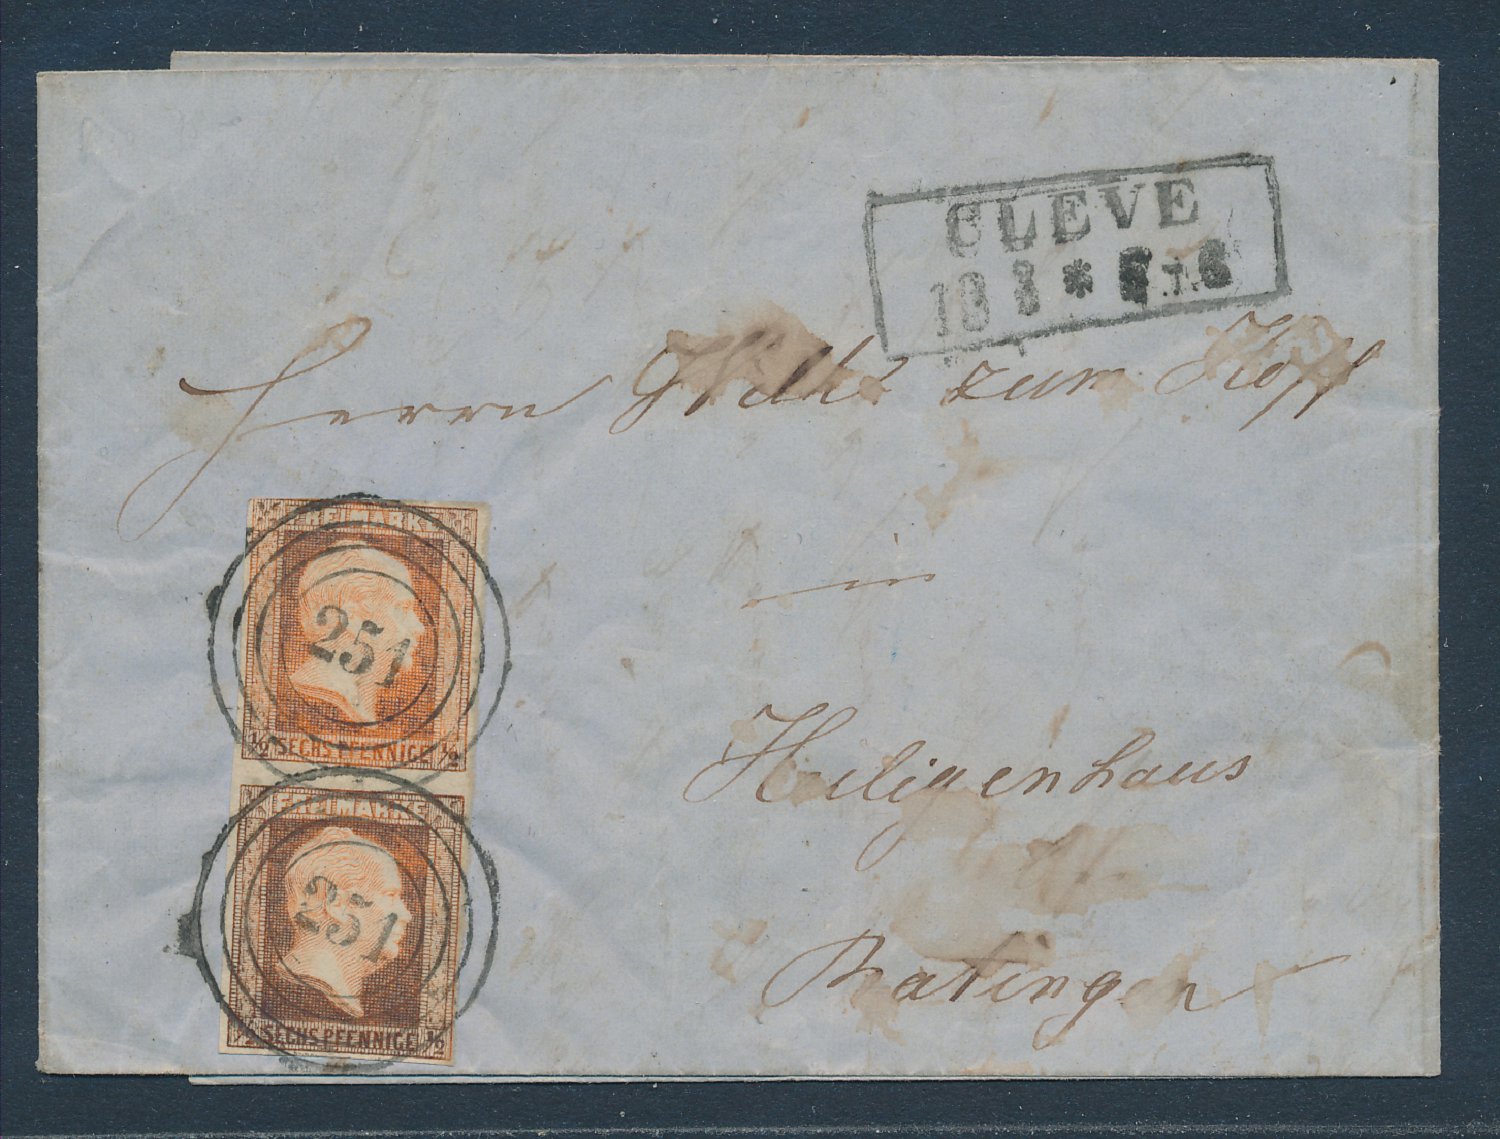 CLEVE
18 3 *
Herrn zum Hoff
in
Heiligenhaus
Ratingen
FREIMARKE
251
½ SECHS PFENNIGE ½
FREIMARKE
251
½ SECHS PFENNIGE ½